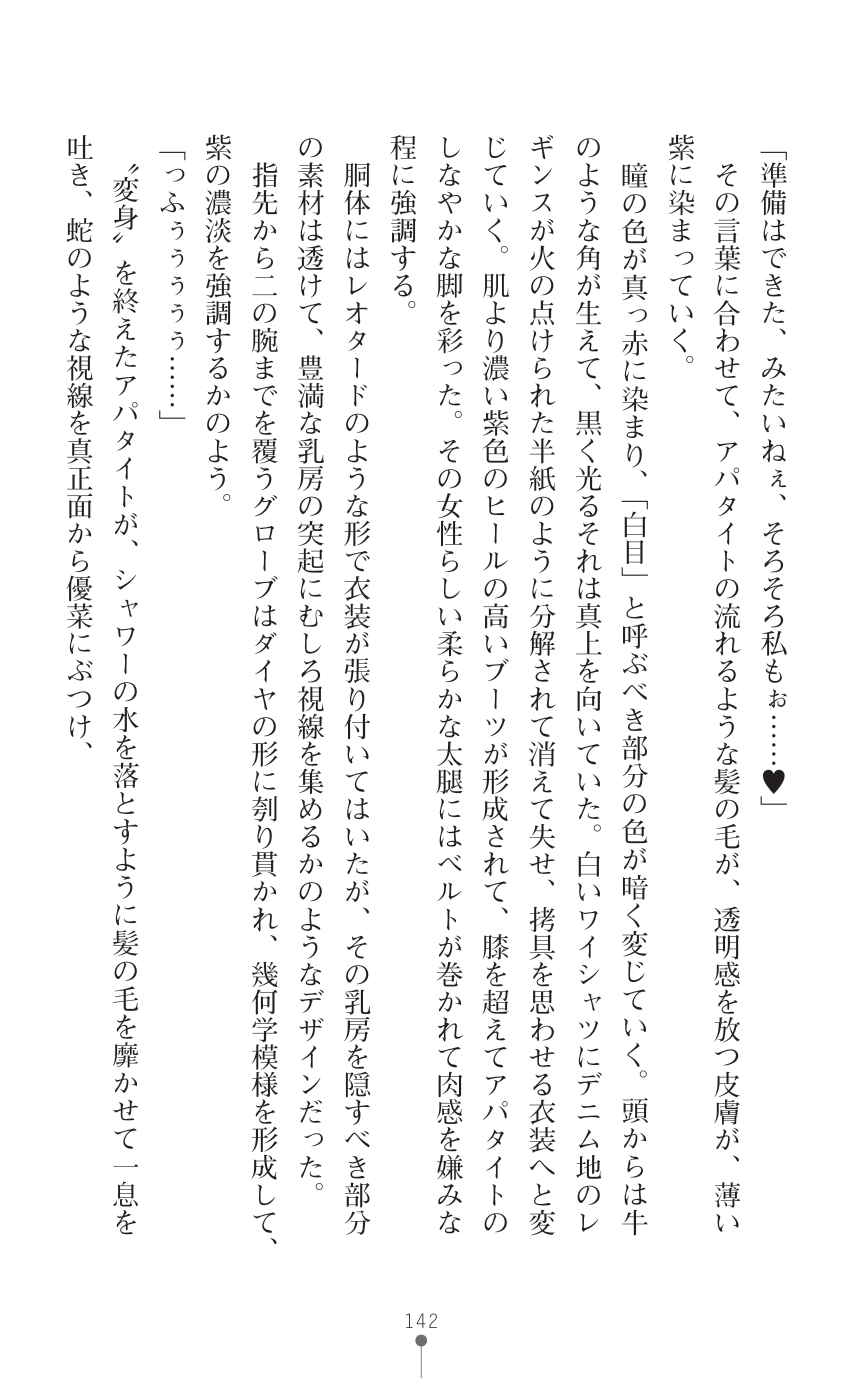 「準備はできた、みたいねぇ、そろそろ私もぉ……♥」
その言葉に合わせて、アパタイトの流れるような髪の毛が、透明感を放つ皮膚が、薄い
紫に染まっていく。
瞳の色が真っ赤に染まり、「白目」と呼ぶべき部分の色が暗く変じていく。頭からは牛
のような角が生えて、黒く光るそれは真上を向いていた。白いワイシャツにデニム地のレ
ギンスが火の点けられた半紙のように分解されて消えて失せ、拷具を思わせる衣装へと変
じていく。肌より濃い紫色のヒールの高いブーツが形成されて、膝を超えてアパタイトの
しなやかな脚を彩った。その女性らしい柔らかな太腿にはベルトが巻かれて肉感を嫌みな
程に強調する。
胴体にはレオタードのような形で衣装が張り付いてはいたが、その乳房を隠すべき部分
の素材は透けて、豊満な乳房の突起にむしろ視線を集めるかのようなデザインだった。
指先から二の腕までを覆うグローブはダイヤの形に刳り貫かれ、幾何学模様を形成して、
紫の濃淡を強調するかのよう。
「っふぅぅぅぅぅ……」
〝変身〟を終えたアパタイトが、シャワーの水を落とすように髪の毛を靡かせて一息を
吐き、蛇のような視線を真正面から優菜にぶつけ、
142